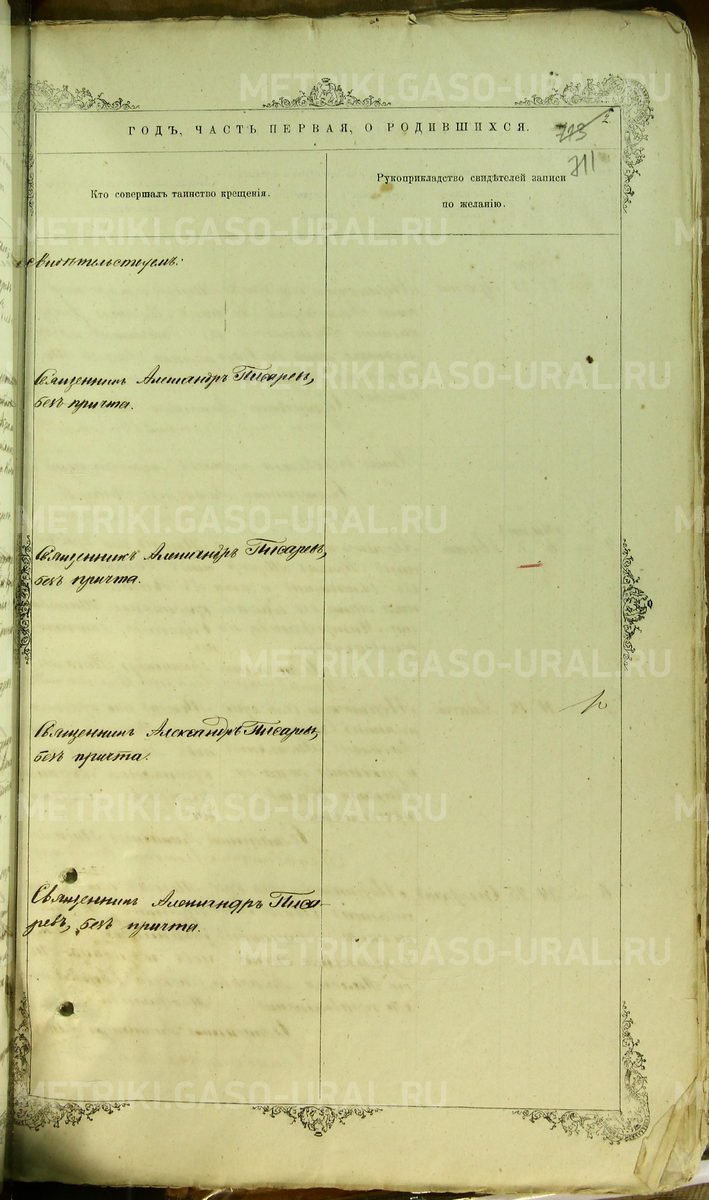 METRIKI.GASO-URAL.RU
ГОДЪ, ЧАСТЬ ПЕРВАЯ, О РОДИВШИХСЯ.
713
2
711
Кто совершалъ таинство крещенія.
Рукоприкладство свидѣтелей записи
по желанію.
METRIKI.GASO-URAL.RU
свидѣтельствуемъ:
Священникъ Александръ Писаревъ,
безъ причта.
METRIKI.GASO-URAL.RU
METRIKI.GASO-URAL.RU
Священникъ Александръ Писаревъ,
безъ причта.
METRIKI.GASO-URAL.RU
Священникъ Александръ Писаревъ,
безъ причта.
METRIKI.GASO-URAL.RU
Священникъ Александръ Писа-
ревъ, безъ причта.
METRIKI.GASO-URAL.RU
METRIKI.GASO-URAL.RU